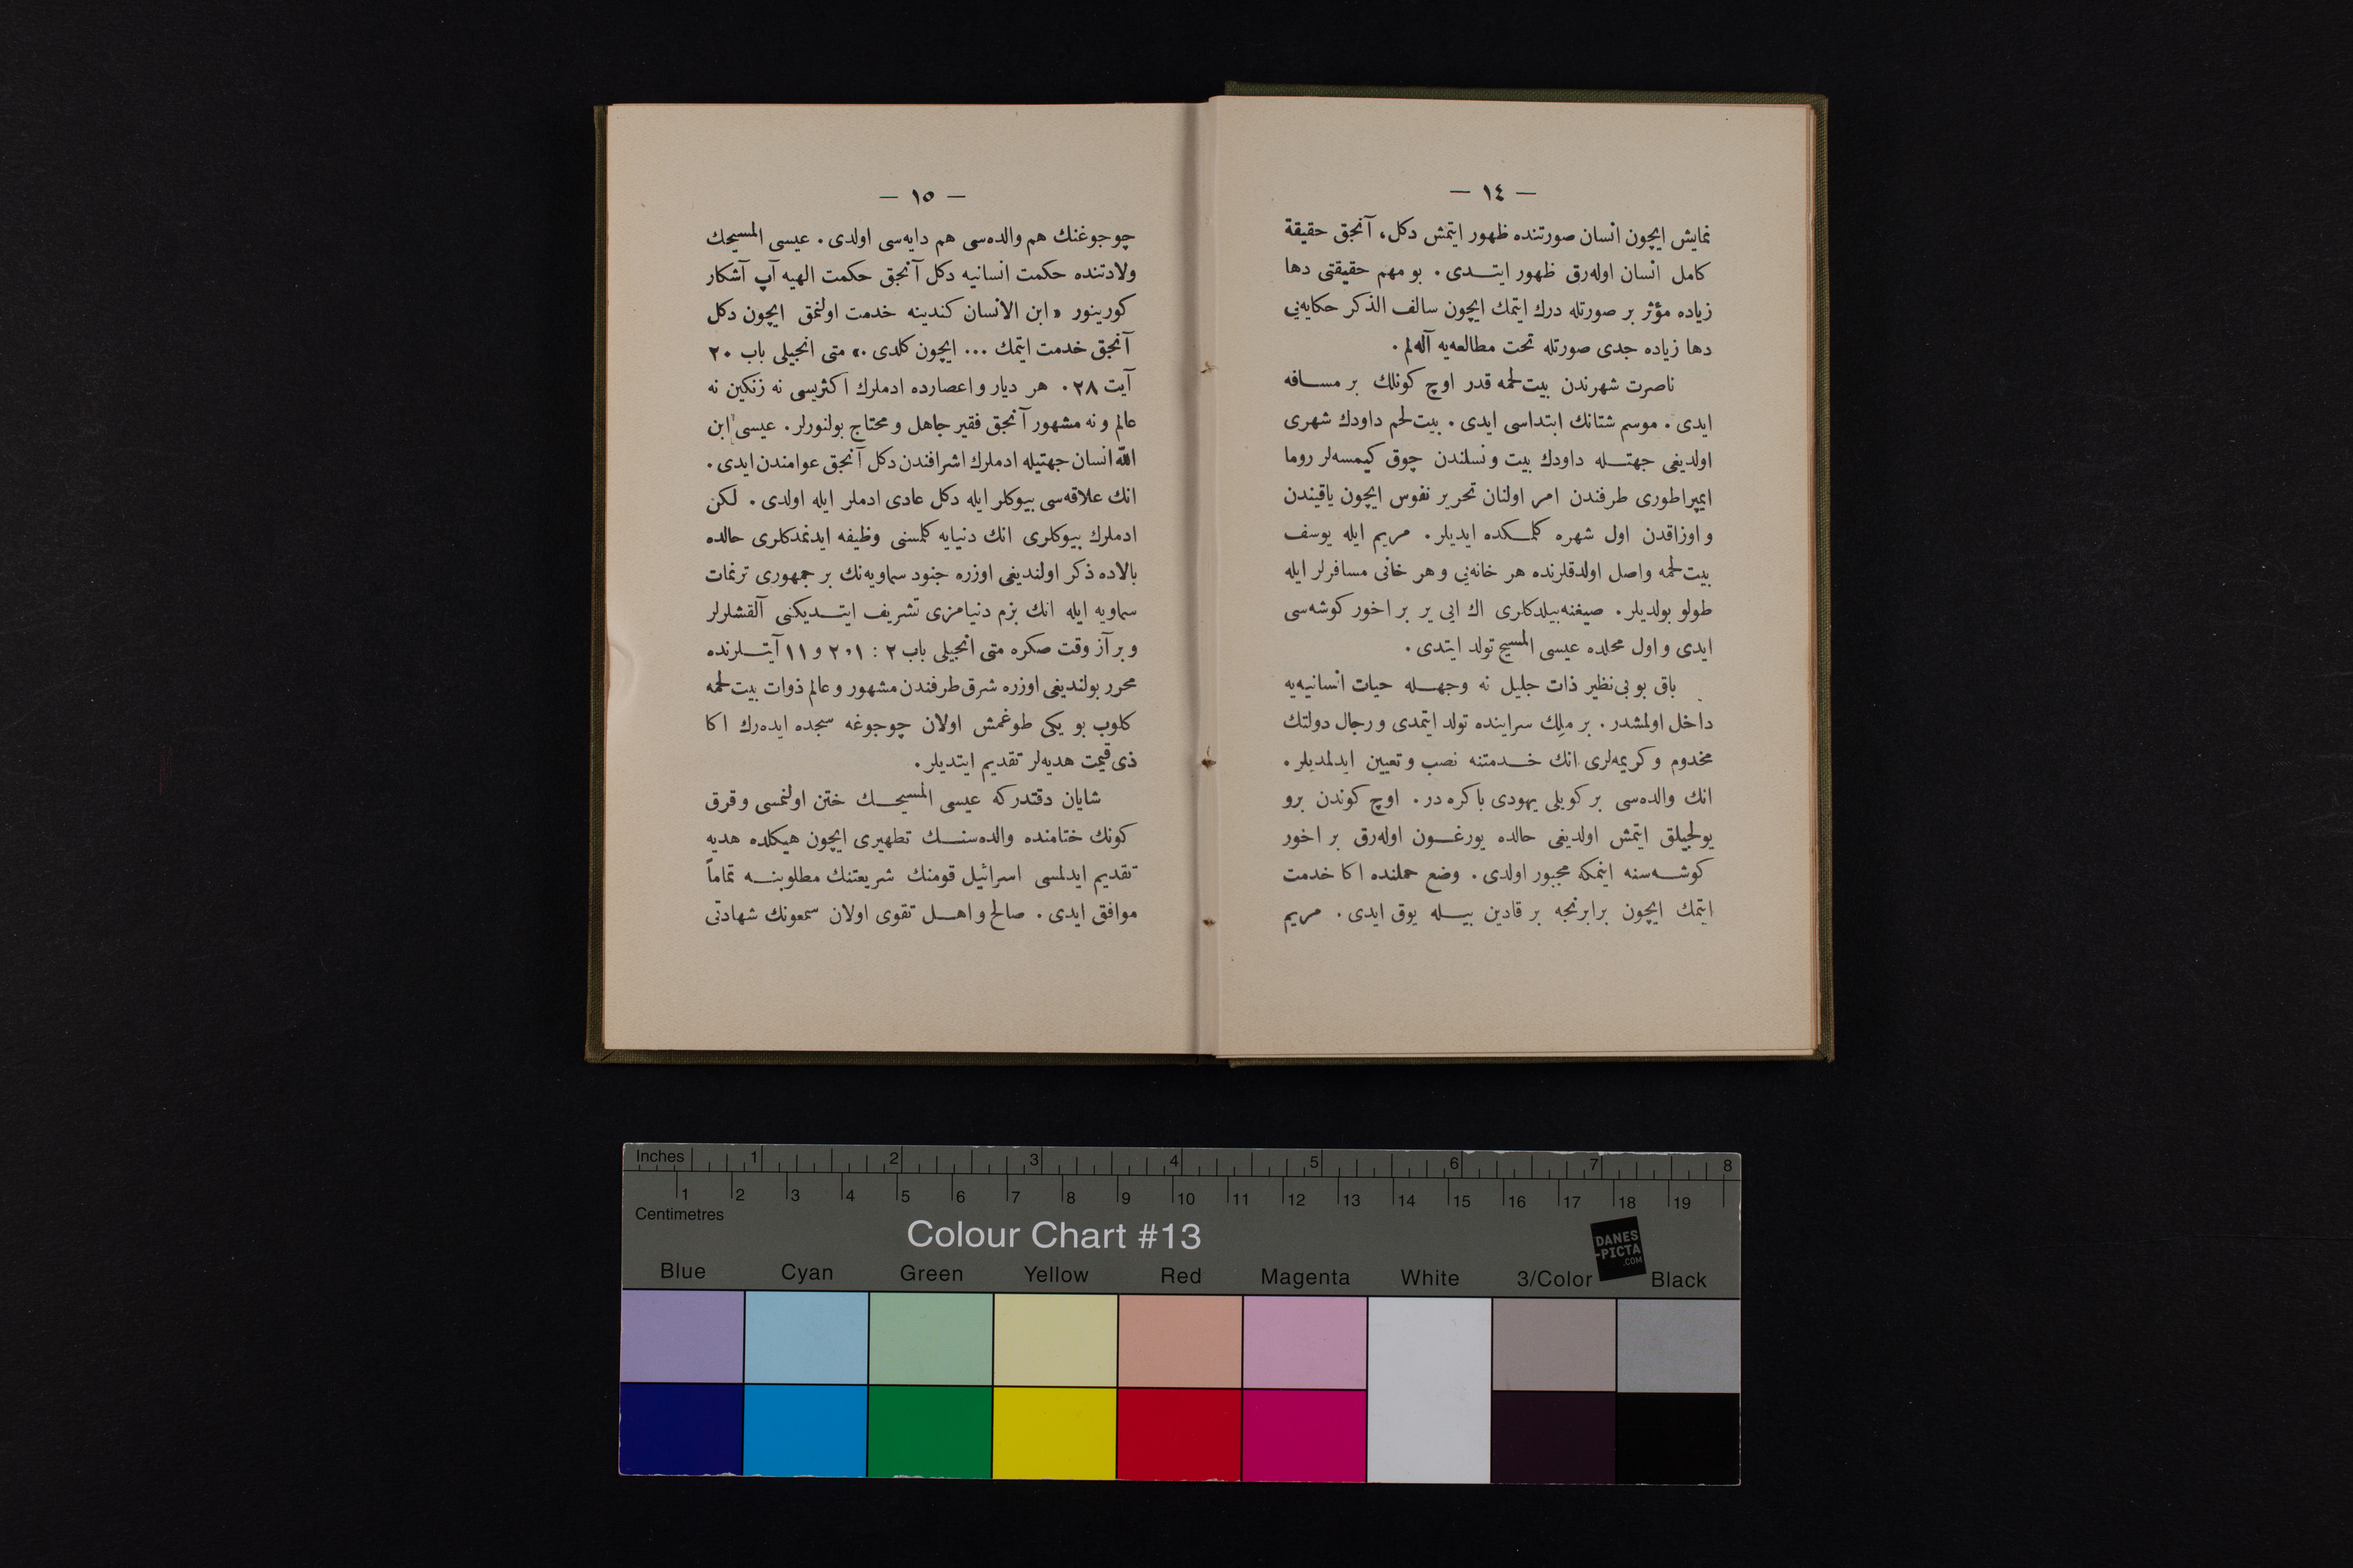 — ١٤ —
نمایش ایچون انسان صورتنده ظهور ایتمش دكل، آنجق حقیقة
كامل انسان اوله‌رق ظهور ایتـدی. بو مهم حقیقتی دها
زیاده مؤثر بر صورتله درك ایتمك ایچون سالف الذكر حكایه‌یی
دها زیاده جدی صورتله تحت مطالعه‌یه آله‌لم.
ناصرت شهرندن بیت‌لحمه قدر اوچ كونلك بر مسافه
ایدی. موسم شتانك ابتداسی ایدی. بیت‌لحم داودك شهری
اولدیغی جهتـله داودك بیت و نسلندن چوق كیمسه‌لر روما
ایمپراطوری طرفندن امر اولنان تحریر نفوس ایچون یاقیندن
و اوزاقدن اول شهره كلمكده ایدیلر. مریم ایله یوسف
بیت‌لحمه واصل اولدقلرنده هر خانه‌یی و هر خانی مسافرلر ایله
طولو بولدیلر. صیغنه‌بیلدكلری اك ایی یر بر اخور كوشه‌سی
ایدی و اول محلده عیسی المسیح تولد ایتدی.
باق بو بی‌نظیر ذات جلیل نه وجهـله حیات انسانیه‌یه
داخل اولمشدر. بر ملِك سراینده تولد ایتمدی و رجال دولتك
مخدوم و كریمه‌لری انك خـدمتنه نصب و تعیین ایدلمدیلر.
انك والده‌سی بر كویلی یهودی باكره در. اوچ كوندن برو
یولجیلق ایتمش اولدیغی حالده یورغـون اوله‌رق بر اخور
كوشـه‌سنه اینمكه مجبور اولدی. وضع حملنده اكا خدمت
ایتمك ایچون برابرنجه بر قادین بیـله یوق ایدی. مریم
— ١٥ —
چوجوغنك هم والده‌سی هم دایه‌سی اولدی. عیسی المسیحك
ولادتنده حكمت انسانیه دكل آنجق حكمت الهیه آپ آشكار
كورینور «ابن الانسان كندینه خدمت اولنمق ایچون دكل
آنجق خدمت ایتمك ... ایچون كلدی.» متی انجیلی باب ٢٠
آیت ٢٨. هر دیار و اعصارده ادملرك اكثریسی نه زنكین نه
عالم و نه مشهور آنجق فقیر جاهل و محتاج بولنورلر. عیسی ابن
الله انسان جهتیله ادملرك اشرافندن دكل آنجق عوامندن ایدی.
انك علاقه‌سی بیوكلر ایله دكل عادی ادملر ایله اولدی. لكن
ادملرك بیوكلری انك دنیایه كلمسنی وظیفه ایدنمدكلری حالده
بالاده ذكر اولندیغی اوزره جنود سماویه‌نك بر جمهوری ترنمات
سماویه ایله انك بزم دنیامزی تشریف ایتـدیكنی آلقشلرلر
و بر آز وقت صكره متی انجیلی باب ٢ : ١، ٢ و ١١ آیتـلرنده
محرر بولندیغی اوزره شرق طرفندن مشهور و عالم ذوات بیت‌لحمه
كلوب بو یكی طوغمش اولان چوجوغه سجده ایده‌رك اكا
ذی قیمت هدیه‌لر تقدیم ایتدیلر.
شایان دقتدركه عیسی المسیحـك ختن اولنمسی و قرق
كونك ختامنده والده‌سنـك تطهیری ایچون هیكلده هدیه
تقدیم ایدلمسی اسرائیل قومنك شریعتنك مطلوبنـه تماماً
موافق ایدی. صالح و اهـل تقوی اولان سمعونك شهادتی
Inches 1 2 3 4 5 6 7 8
1 2 3 4 5 6 7 8 9 10 11 12 13 14 15 16 17 18 19
Centimetres
Colour Chart #13
DANES
-PICTA
.COM
Blue Cyan Green Yellow Red Magenta White 3/Color Black